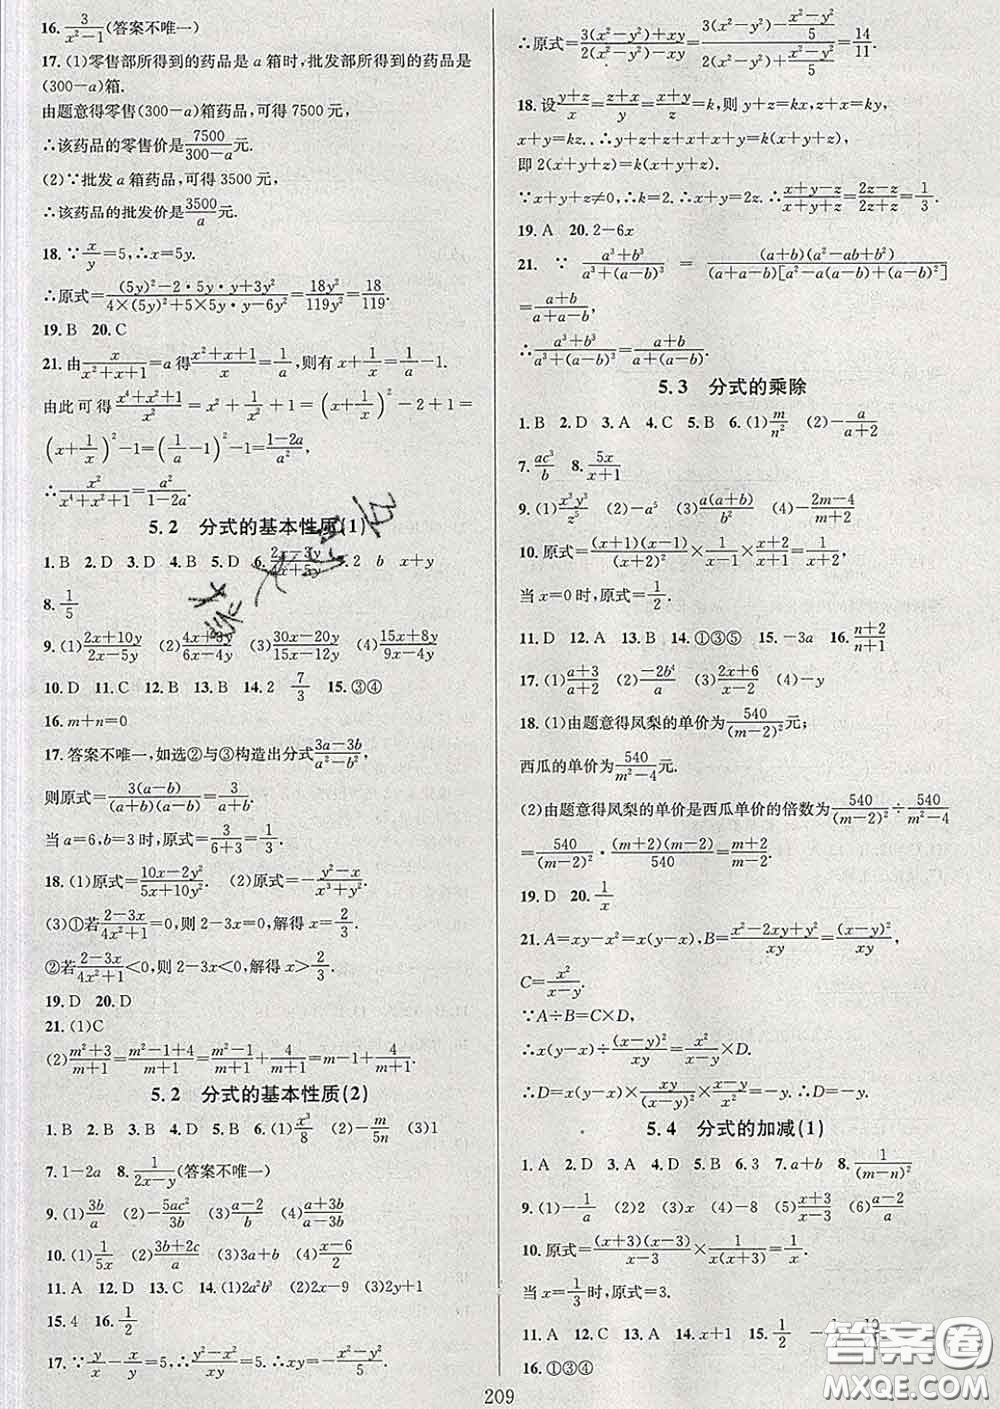 16. 3/(x²−1)(答案不唯一)
17. (1)零售部所得到的药品是a箱时,批发部所得到的药品是
(300−a)箱.
由题意得零售(300−a)箱药品,可得7500元,
∴该药品的零售价是7500/(300−a)元.
(2)∵批发a箱药品,可得3500元,
∴该药品的批发价是3500/a元.
18. ∵x/y=5,∴x=5y.
∴原式=((5y)²−2·5y·y+3y²)/(4×(5y)²+5×5y·y−6y²)=18y²/119y²=18/119.
19. B 20. C
21. 由x/(x²+x+1)=a得(x²+x+1)/x=1/a,则有x+1/x=1/a−1.
由此可得(x⁴+x²+1)/x²=x²+1/x²+1=(x+1/x)²−2+1=
(x+1/x)²−1=(1/a−1)²−1=(1−2a)/a²,
∴x²/(x⁴+x²+1)=a²/(1−2a).
5.2 分式的基本性质(1)
1. B 2. D 3. D 4. B 5. D 6. (2x−3y)/(4x+5y) 7. 2 b x+y
8. 1/5
9. (1)(2x+10y)/(2x−5y) (2)(4x+3y)/(6x−4y) (3)(30x−20y)/(15x−12y) (4)(15x+8y)/(9x−4y)
10. D 11. C 12. B 13. B 14. 2 7/3 15. ③④
16. m+n=0
17. 答案不唯一,如选②与③构造出分式(3a−3b)/(a²−b²),
则原式=3(a−b)/((a+b)(a−b))=3/(a+b).
当a=6,b=3时,原式=3/(6+3)=1/3.
18. (1)原式=(10x−2y)/(5x+10y²). (2)原式=−(y²−x)/(x³+y²).
(3)①若(2−3x)/(4x²+1)=0,则2−3x=0,解得x=2/3.
②若(2−3x)/(4x²+1)<0,则2−3x<0,解得x>2/3.
19. D 20. D
21. (1)C
(2)(m²+3)/(m+1)=(m²−1+4)/(m+1)=(m²−1)/(m+1)+4/(m+1)=m−1+4/(m+1).
5.2 分式的基本性质(2)
1. B 2. B 3. B 4. D 5. B 6. (1)x³/8 (2)−m/5n (3)1
7. 1−2a 8. 1/(2x−y)(答案不唯一)
9. (1)3b/a (2)−5ac²/3b (3)(a−2)/b (4)(a+3b)/(a−3b)
10. (1)1/5x (2)(3b+2c)/a (3)3a+b (4)(x−6)/2
11. A 12. D 13. C 14. (1)2a²b³ (2)2x−9 (3)2y+1
15. 4 16. 1/2
17. ∵y/x−x/y=5,∴(y²−x²)/xy=5. ∴xy=−(x²−y²)/5.
∴原式=(3(x²−y²)+xy)/(2(x²−y²)−xy)=(3(x²−y²)−(x²−y²)/5)/(2(x²−y²)+(x²−y²)/5)=14/11.
18. 设(y+z)/x=(z+x)/y=(x+y)/z=k,则y+z=kx,z+x=ky,
x+y=kz. ∴x+y+y+z+z+x=k(x+y+z),
即2(x+y+z)=k(x+y+z).
∵x+y+z≠0,∴k=2. ∴x+y=2z. ∴(x+y−z)/(x+y+z)=(2z−z)/(2z+z)=1/3.
19. A 20. 2−6x
21. ∵(a³+b³)/(a³+(a−b)³)=(a+b)(a²−ab+b²)/((a+a−b)[a²−a(a−b)+(a−b)²])
=(a+b)/(a+a−b),
∴(a³+b³)/(a³+(a−b)³)=(a+b)/(a+(a−b)).
5.3 分式的乘除
1. B 2. D 3. A 4. C 5. B 6. (1)m/n² (2)−a/(a+2)
7. ac³/b 8. 5x/(x+1)
9. (1)x³y³/z⁵ (2)−a⁵ (3)a(a+b)/b² (4)−(2m−4)/(m+2)
10. 原式=(x+1)(x−1)/(x+2)²×1/(x−1)×(x+2)/(x+1)=1/(x+2),
当x=0时,原式=1/2.
11. D 12. A 13. D 14. ①③⑤ 15. −3a 16. (n+2)/(n+1)
17. (1)(a+3)/(a+2) (2)−2b⁴/a (3)(2x+6)/(x−2) (4)−y
18. (1)由题意得凤梨的单价为540/(m−2)²元;
西瓜的单价为540/(m²−4)元.
(2)由题意得凤梨的单价是西瓜单价的倍数为540/(m−2)²÷540/(m²−4)
=540/(m−2)²·(m+2)(m−2)/540=(m+2)/(m−2).
19. D 20. 1/x
21. A=xy−x²=x(y−x),B=(x²−2xy+y²)/xy=(x−y)²/xy,
C=x²/(x−y).
∵A÷B=C×D,
∴x(y−x)÷(x−y)²/xy=x²/(x−y)×D.
∴D=−x(x−y)×xy/(x−y)²×(x−y)/x²=−y. ∴D=−y.
5.4 分式的加减(1)
1. A 2. D 3. D 4. D 5. B 6. 3 7. a+b 8. 1/(m−n)²
9. (1)−1/a (2)2 (3)x (4)−8 (5)(x+3)/(x−3) (6)2/a
10. 原式=(x+3)(x−3)/(x−3)×1/(x(x+3))=1/x.
当x=1/3时,原式=3.
11. A 12. C 13. A 14. x+1 15. 1/2
16. ①③④
209
答案圈
MXQE.COM